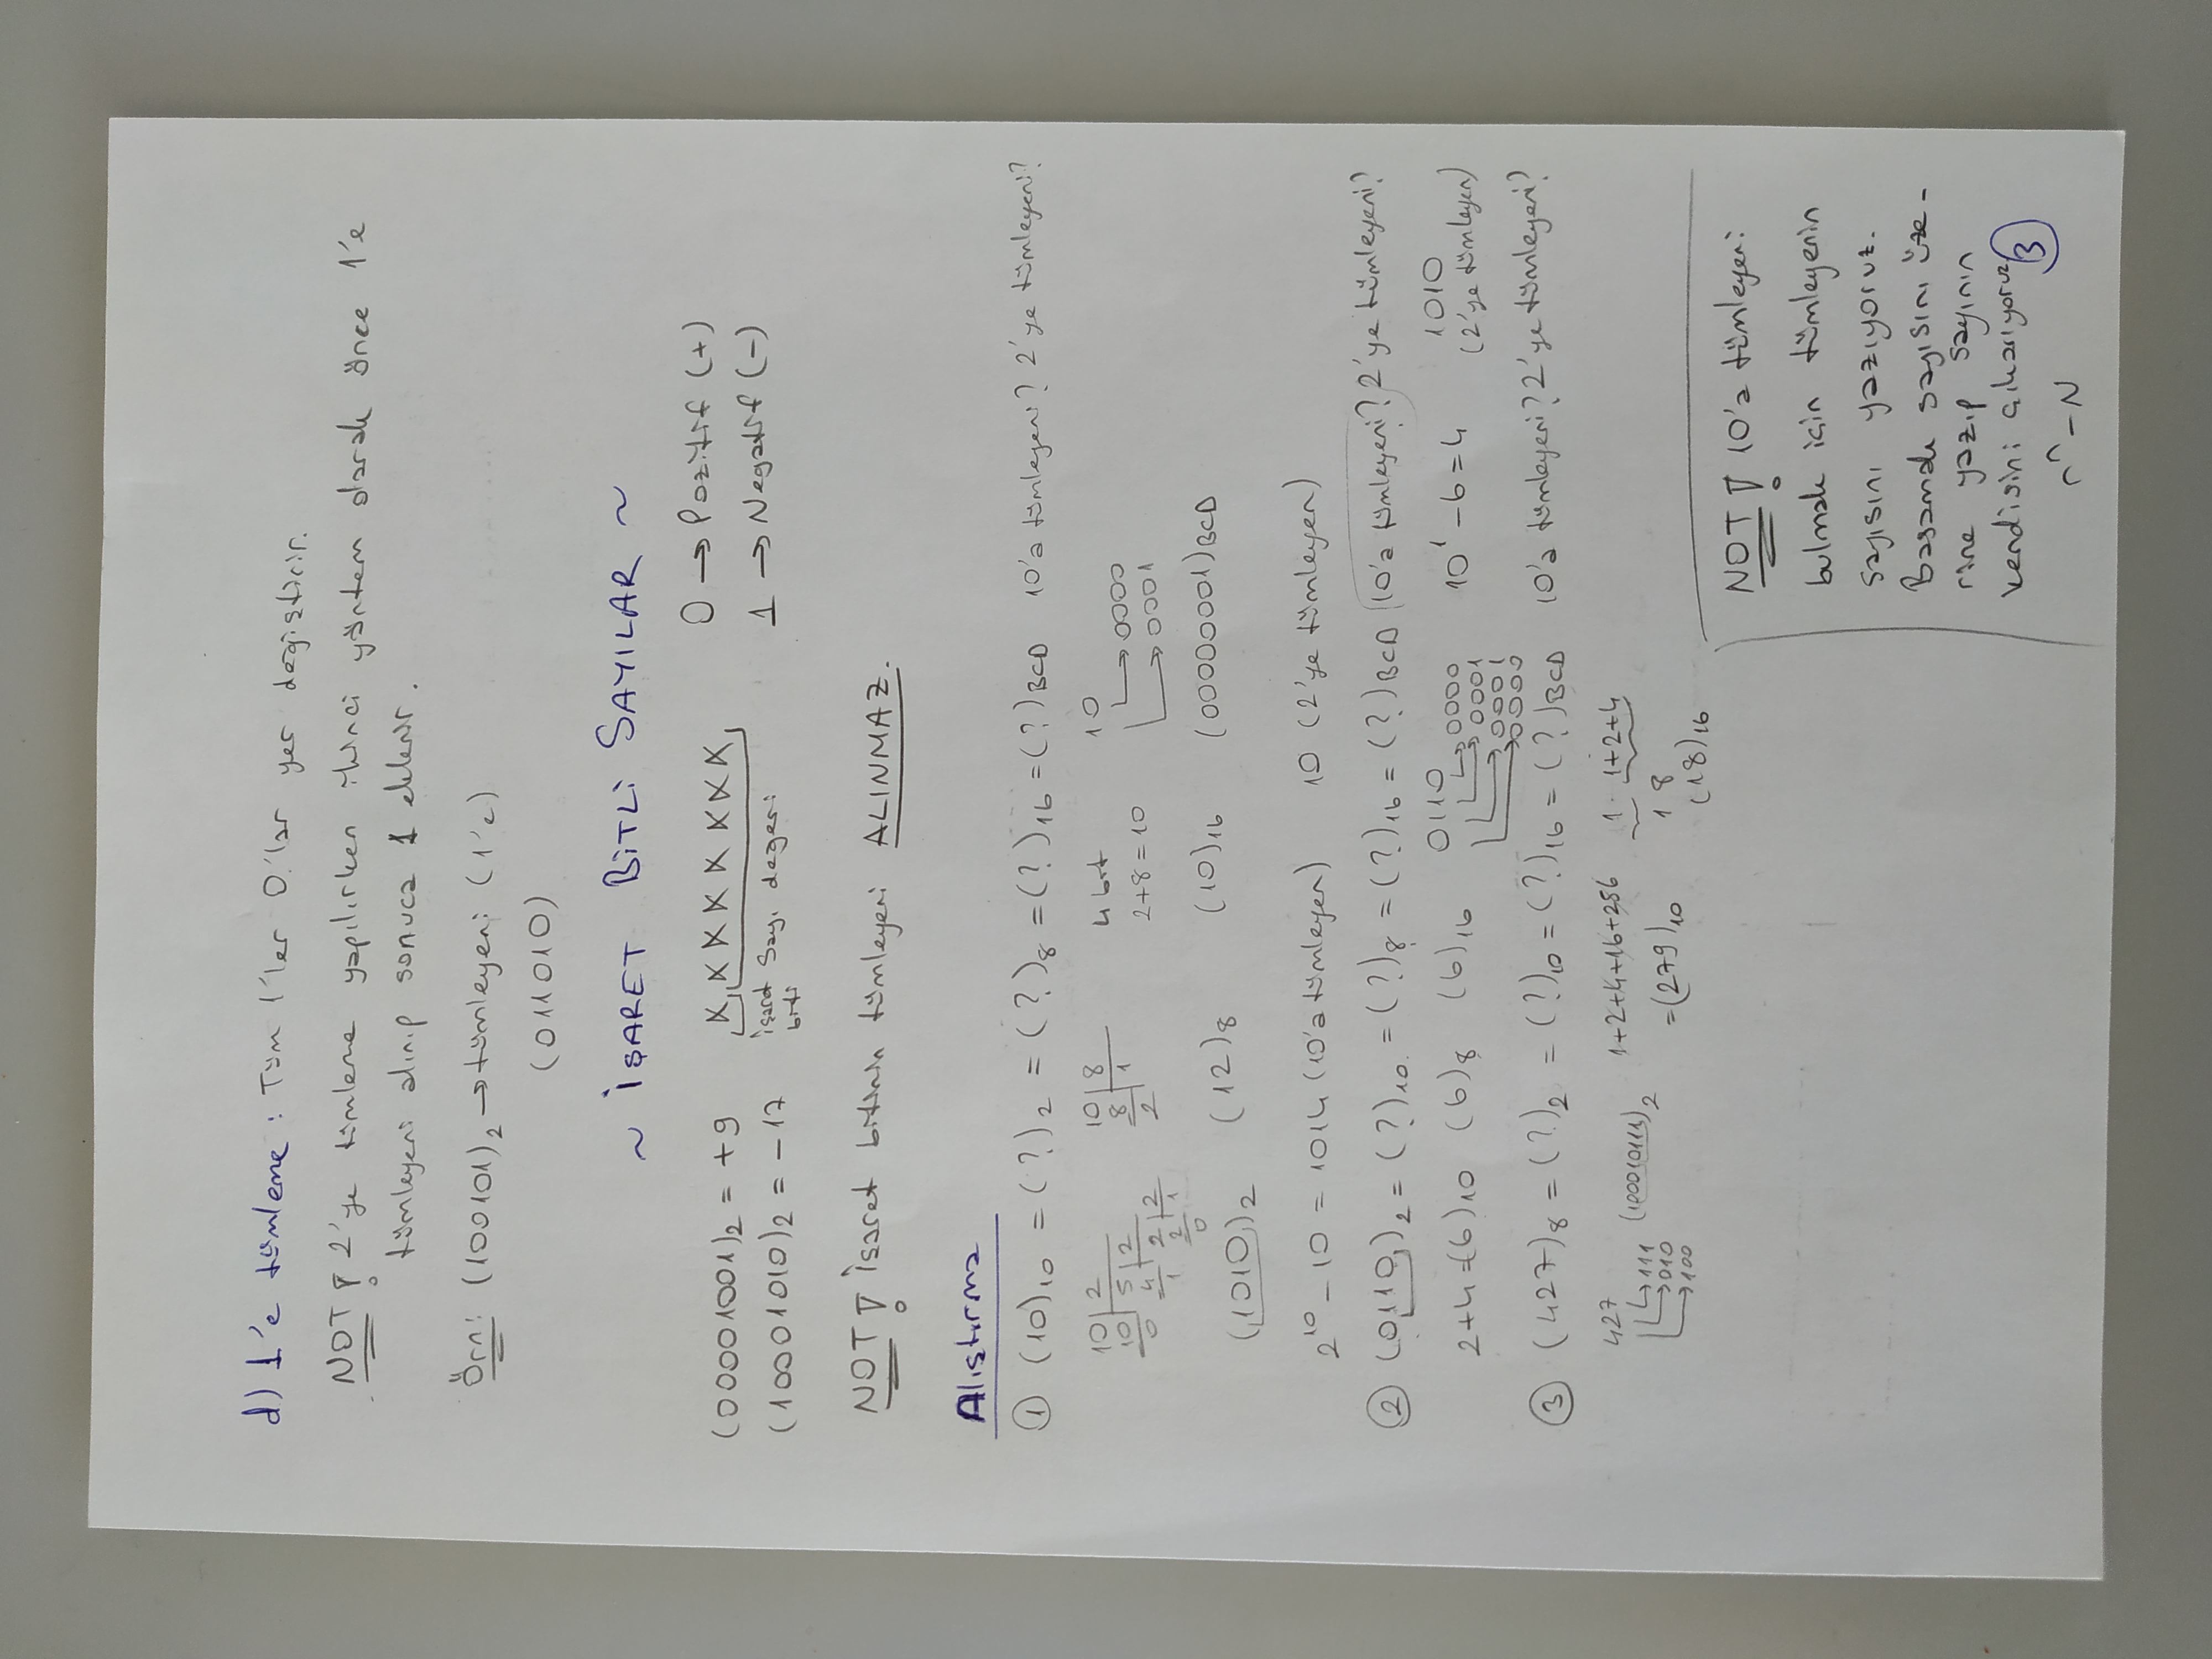 d) 1'e tümleme : Tüm 1'ler 0'lar yer değiştirir.
NOT ! 2'ye tümleme yapılırken ikinci yöntem olarak önce 1'e
tümleyeni alınıp sonuca 1 eklenir.
Örn: (100101)₂ → tümleyeni (1'e)
(011010)
~ İŞARET BİTLİ SAYILAR ~
(00001001)₂ = +9 X X X X X X X X 0 → Pozitif (+)
(10001010)₂ = -17 işaret biti Sayı değeri 1 → Negatif (-)
NOT ! İşaret bitinin tümleyeni ALINMAZ.
Alıştırma
① (10)₁₀ = (?)₂ = (?)₈ = (?)₁₆ = (?)BCD 10'a tümleyeni? 2'ye tümleyeni?
10 2 10 8 4 bit 10
10 5 2 8 1 2+8=10 → 0000
0 4 2 2 2 → 0001
1 2 1
0
(1010)₂ (12)₈ (10)₁₆ (00000001)BCD
2¹⁰ - 10 = 1014 (10'a tümleyen) 10 (2'ye tümleyen)
② (0110)₂ = (?)₁₀ = (?)₈ = (?)₁₆ = (?)BCD 10'a tümleyeni? 2'ye tümleyeni?
2+4=(6)₁₀ (6)₈ (6)₁₆ 0110 10¹ - 6 = 4 1010
→ 0000 (2'ye tümleyen)
→ 0001
→ 0001
→ 0000
③ (427)₈ = (?)₂ = (?)₁₀ = (?)₁₆ = (?)BCD 10'a tümleyeni? 2'ye tümleyeni?
427 (100010111)₂ 1+2+4+16+256 1 1+2+4
→ 111 =(279)₁₀ 1 8
→ 010 (18)₁₆
→ 100
NOT ! 10'a tümleyeni
bulmak için tümleyenin
sayısını yazıyoruz.
Basamak sayısını üze-
rine yazıp sayının
kendisini çıkarıyoruz.
③
rⁿ - N